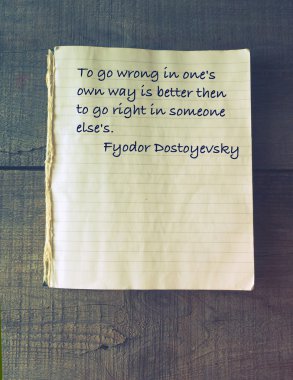 To go wrong in one's
own way is better then
to go right in someone
else's.
Fyodor Dostoyevsky